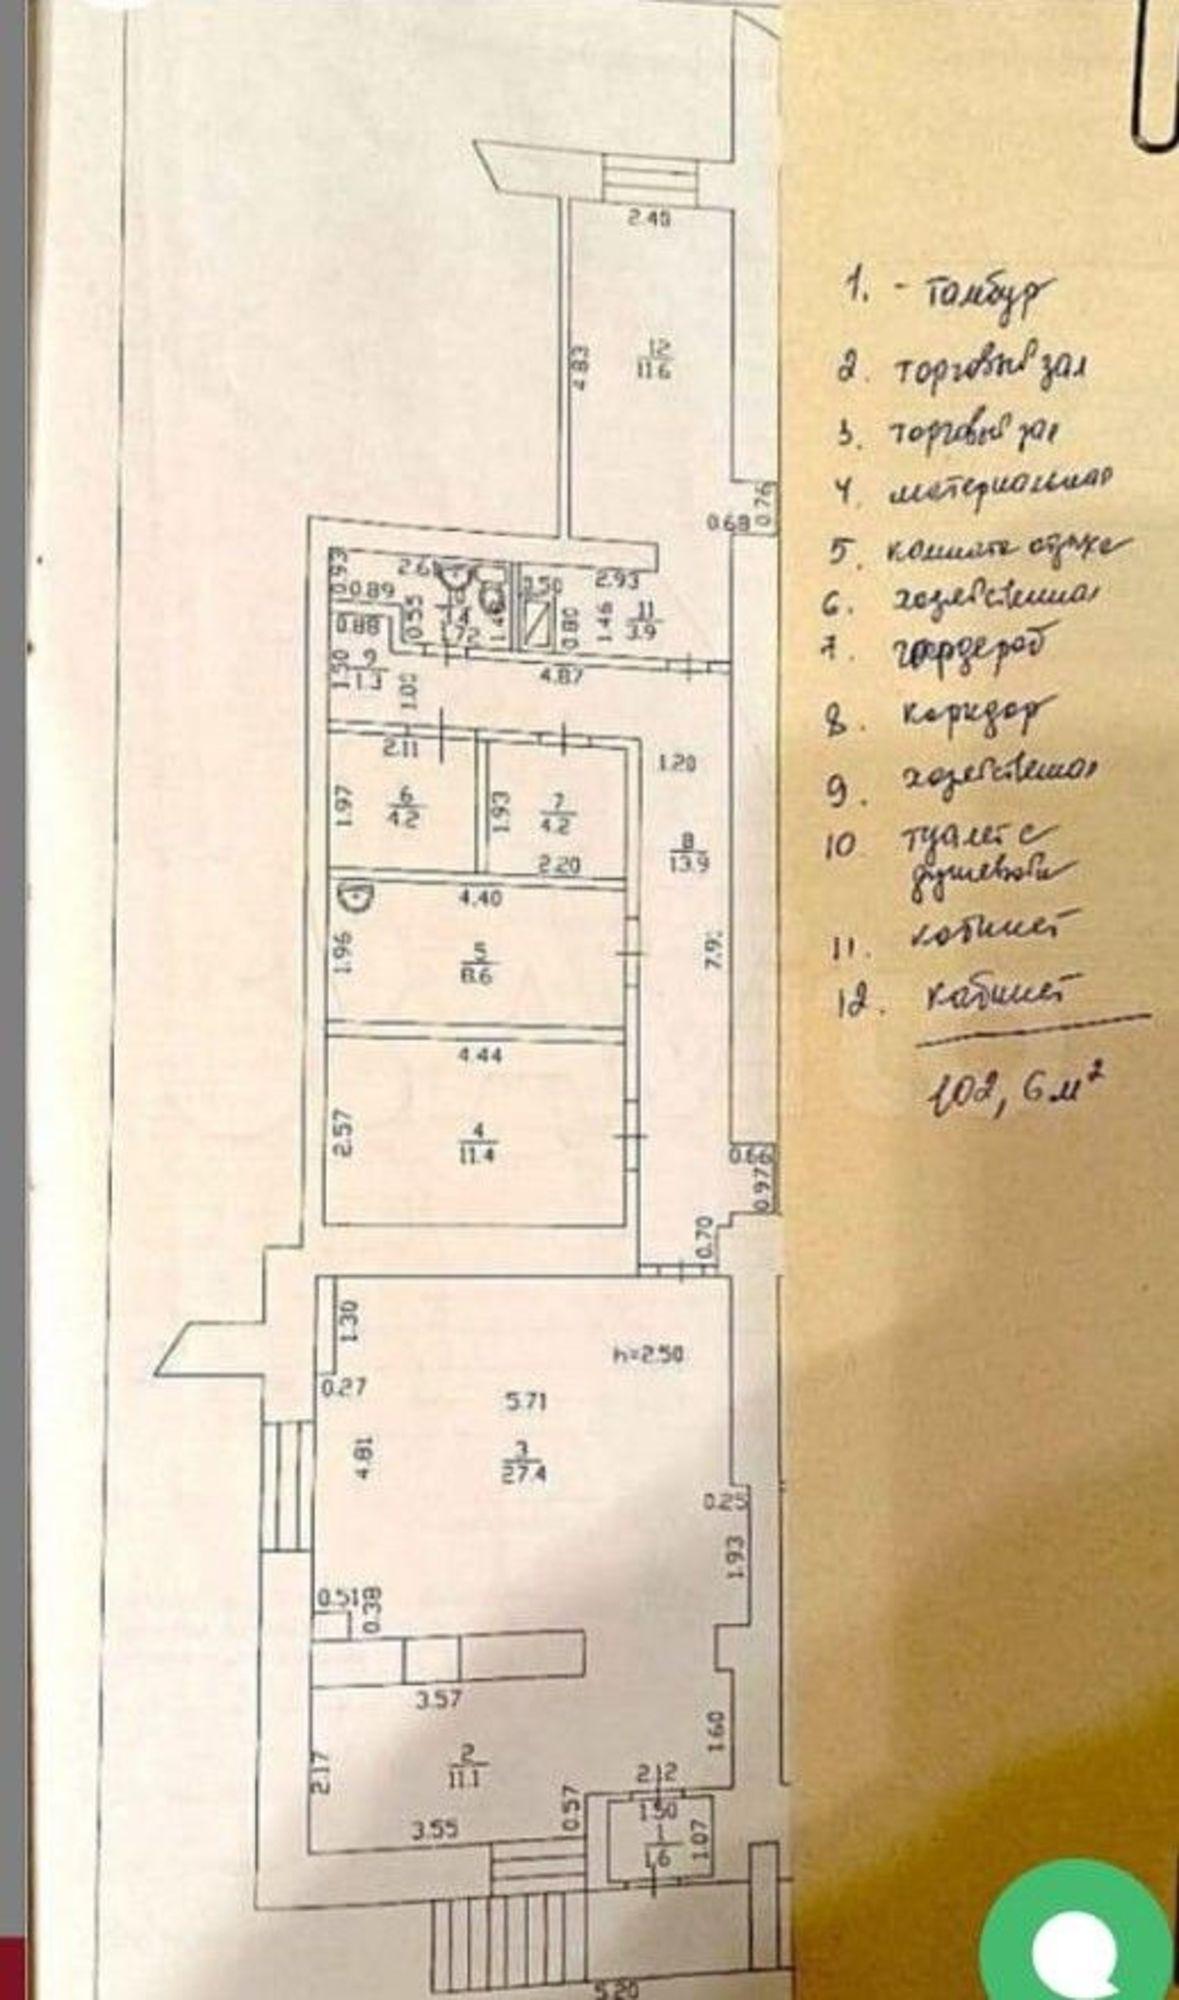 2.40
12
11.6
4.83
0.76
0.68
0.93
2.6
0.50
2.93
0.89
0.55
0.88
.72
1.4
0.80
1.46
11
3.9
9
1.3
1.50
1.00
4.87
2.11
1.20
1.97
6
4.2
1.93
7
4.2
8
13.9
2.20
4.40
1.96
8.6
7.9
4.44
2.57
4
11.4
0.66
0.97
0.70
1.30
h=2.50
0.27
5.71
4.81
3
27.4
0.25
1.93
0.51
0.38
3.57
1.60
2.17
2
11.1
2.12
0.57
1.50
3.55
1
1.6
1.07
5.20
1. - тамбур
2. торговый зал
3. торговый зал
4. материальная
5. комната отдыха
6. хозяйственная
7. гардероб
8. коридор
9. хозяйственная
10 туалет с
душевой
11. кабинет
12. кабинет
102,6 м²